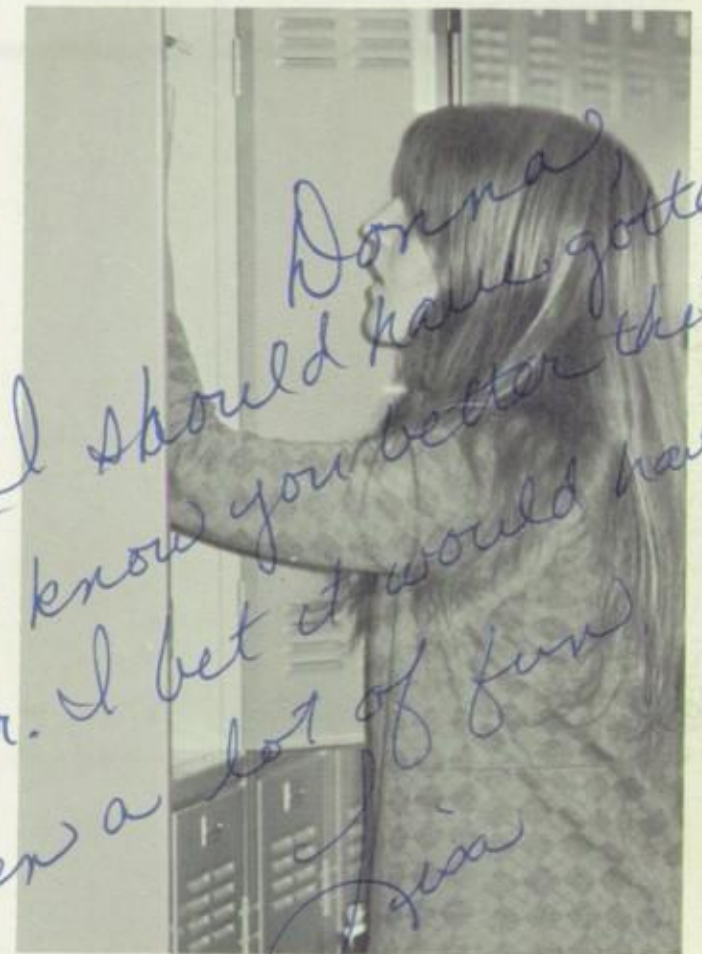 Donna,
I should have gotte
know you better thi
r. I bet it would hav
en a lot of fun.
Lisa